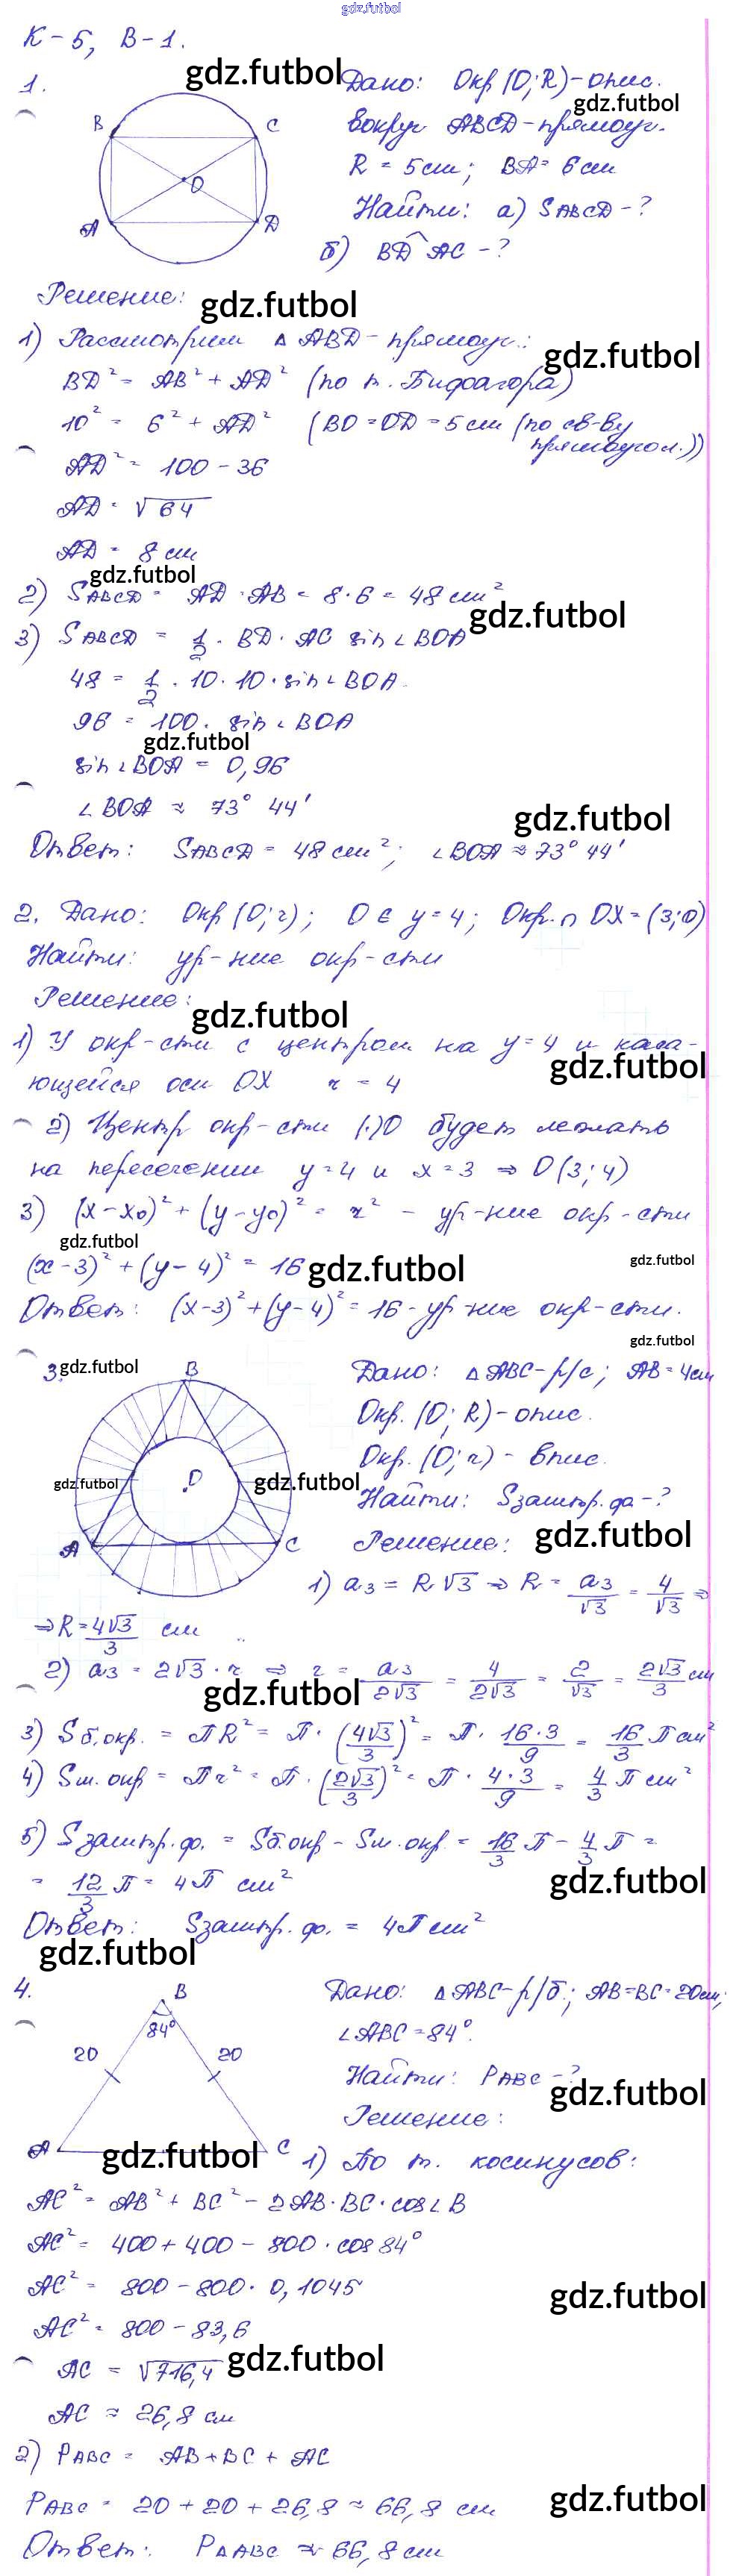 gdz.futbol
К-5, В-1.
1.
gdz.futbol
Дано: Окр (O; R)-опис.
gdz.futbol
вокруг ABCD-прямоуг.
R = 5см; BA = 6см
Найти: а) SABCD-?
б) BD^AC-?
B
C
O
A
D
Решение:
gdz.futbol
1) Рассмотрим Δ ABD-прямоуг.:
gdz.futbol
BD² = AB² + AD² (по т. Пифагора)
10² = 6² + AD² (BO=OD=5см (по св-ву
прямоугол.))
AD² = 100-36
AD = √64
AD = 8 см
gdz.futbol
2) SABCD = AD · AB = 8·6 = 48 см²
gdz.futbol
3) SABCD = 1/2 · BD · AC sin∠BOA
48 = 1/2 · 10 · 10 · sin∠BOA
96 = 100 · sin∠BOA
gdz.futbol
sin∠BOA = 0,96
∠BOA ≈ 73° 44'
gdz.futbol
Ответ: SABCD = 48 см²; ∠BOA ≈ 73° 44'
2. Дано: Окр (O; r); O ∈ y=4; Окр. ∩ OX = (3; 0)
Найти: ур-ние окр-сти
Решение:
gdz.futbol
1) У окр-сти с центром на y=4 и каса-
gdz.futbol
ющейся оси OX r = 4
2) Центр окр-сти (·)O будет лежать
на пересечении y=4 и x=3 ⇒ O(3; 4)
3) (x-x0)² + (y-y0)² = r² - ур-ние окр-сти
gdz.futbol
(x-3)² + (y-4)² = 16
gdz.futbol
gdz.futbol
Ответ: (x-3)² + (y-4)² = 16-ур-ние окр-сти.
gdz.futbol
3.
gdz.futbol
B
Дано: Δ ABC-р/с; AB=4см
Окр. (O; R)-опис.
Окр. (O; r)-впис.
O
gdz.futbol
gdz.futbol
Найти: Sзаштр.ф-?
gdz.futbol
A
C
Решение:
1) a3 = R√3 ⇒ R = a3/√3 = 4/√3 ⇒
⇒ R = 4√3/3 см
2) a3 = 2√3 · r ⇒ r = a3/2√3 = 4/2√3 = 2/√3 = 2√3/3 см
gdz.futbol
3) Sб.окр. = ПR² = П · (4√3/3)² = П · 16·3/9 = 16/3 П см²
4) Sм.окр = Пr² = П · (2√3/3)² = П · 4·3/9 = 4/3 П см²
5) Sзаштр.ф. = Sб.окр - Sм.окр = 16/3 П - 4/3 П =
= 12/3 П = 4П см²
gdz.futbol
Ответ: Sзаштр.ф. = 4П см²
gdz.futbol
4.
B
84°
20
20
A
C
Дано: Δ ABC-р/б; AB=BC=20см;
∠ABC=84°.
Найти: PABC-?
gdz.futbol
Решение:
gdz.futbol
1) По т. косинусов:
AC² = AB² + BC² - 2AB · BC · cos∠B
AC² = 400 + 400 - 800 · cos84°
AC² = 800-800 · 0,1045
gdz.futbol
AC² = 800 - 83,6
AC = √716,4
gdz.futbol
AC ≈ 26,8 см
2) PABC = AB + BC + AC
PABC = 20 + 20 + 26,8 ≈ 66,8 см
gdz.futbol
Ответ: PΔABC ≈ 66,8 см